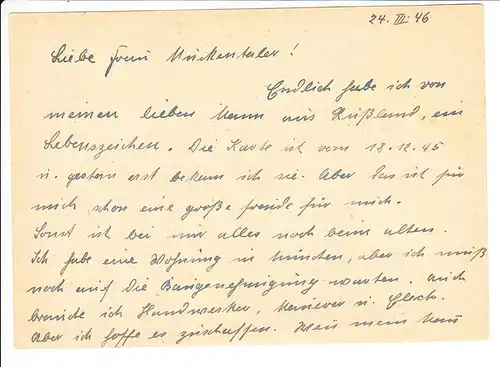 24. III. 46
Liebe Frau Muckentaler!
Endlich habe ich von
meinen lieben Mann aus Rußland, ein
Lebenszeichen. Die Karte ist vom 18.12.45
u. gestern erst bekam ich sie. Aber das ist für
mich schon eine große freude für mich.
Sonst ist bei mir alles noch beim alten.
Ich habe eine Wohnung in München, aber ich muß
noch auf die Baugenehmigung warten. Auch
brauche ich Handwerker, Maurer u. Elect.
Aber ich hoffe es zuschaffen. Weis mein Mann